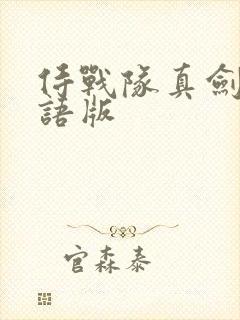 侍戰隊真劍
語版
官森泰